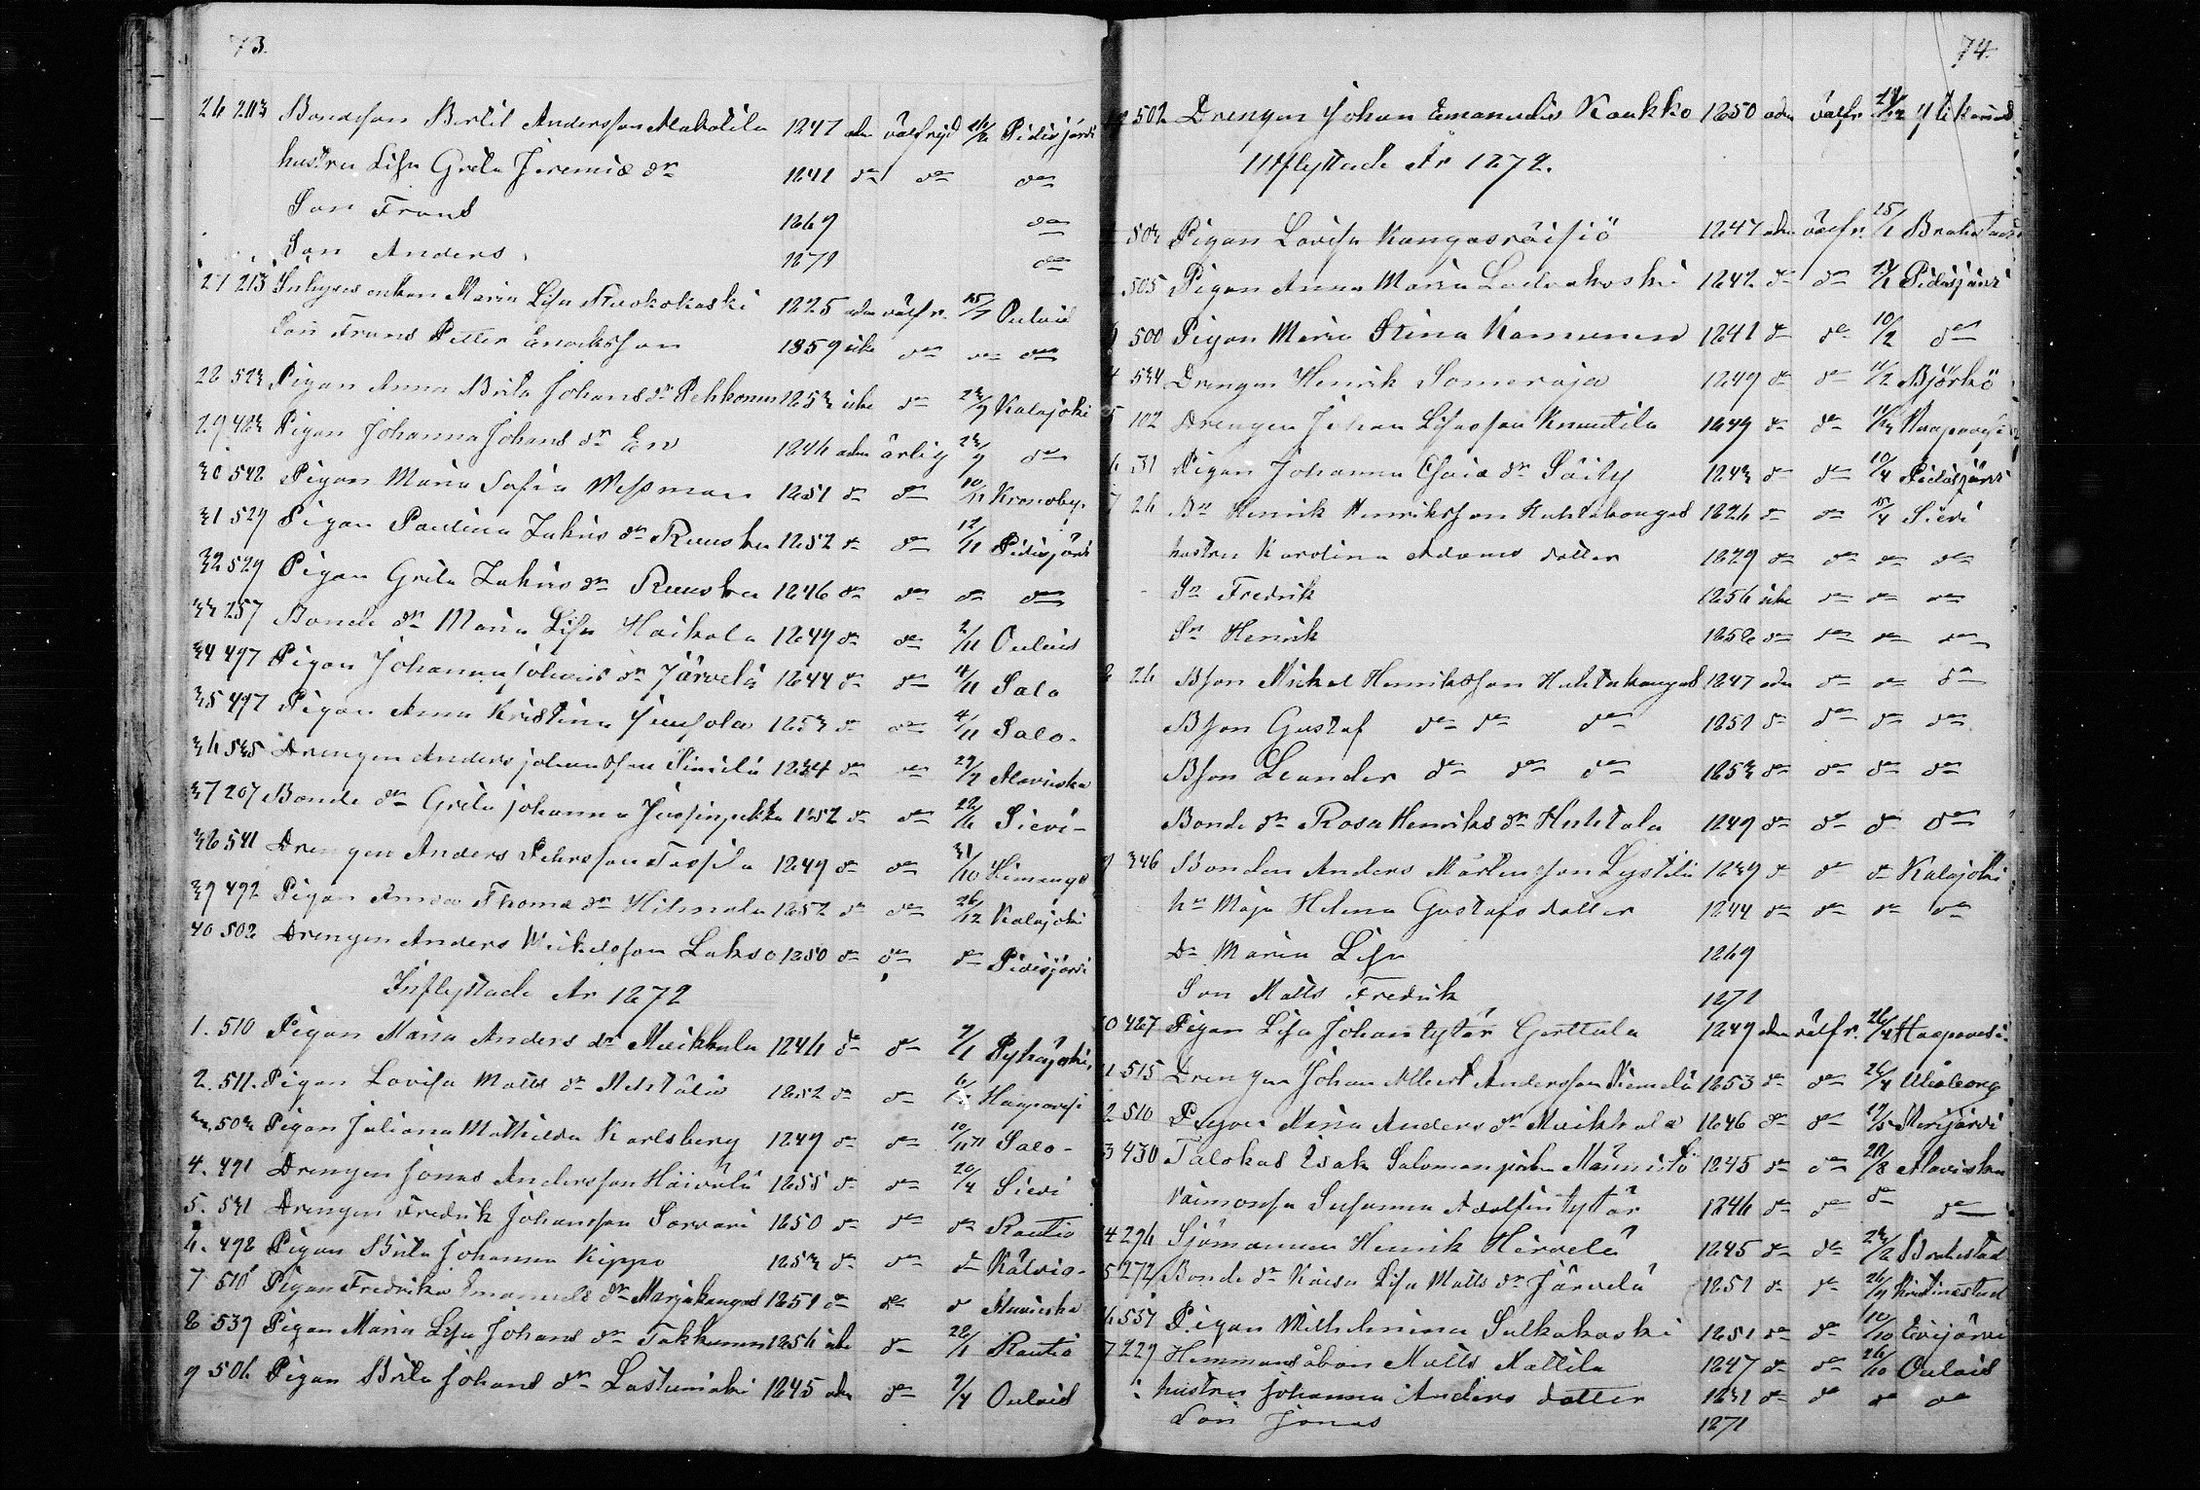 73.
26 203 Bondeson Bertil Andersson Makotila 1847 adm välfrejd 26/2 Pidisjärvi
hustru Lisa Greta Jeremiæ dr 1841 do do do
Son Frans 1869 do
Son Anders 1871 do
27 213 Inhyses enkan Maria Lisa Ruokokoski 1825 adm välfr. Oulais
Son Frans Petter Eneksson 1859 icke do do do
28 523 Pigan Anna Brita Johans dr Pehkonen 1853 icke do 23/9 Kalajoki
29 423 Pigan Johanna Johans dr En 1846 adm ärlig 23/9 do
30 542 Pigan Maria Sofia Wessman 1851 do do 10/11 Kronoby.
31 529 Pigan Paulina Zakris dr Ruuska 1852 do do 12/11 Pidisjärvi
32 529 Pigan Greta Zakris dr Ruuska 1846 do do do do
33 257 Bonde dr Maria Lisa Haikola 1849 do do 2/11 Oulais
34 497 Pigan Johanna Johans dr Järvelä 1844 do do 4/11 Salo
35 497 Pigan Anna Kristina Juusola 1853 do do 4/11 Salo.
36 535 Drengen Anders Johansson Pinilä 1834 do do 29/9 Alavieska
37 207 Bonde dr Greta Johanna Jussinpekka 1852 do do Sievi
38 541 Drengen Anders Pehrsson Tassila 1849 do do 31/10 Himango
39 492 Pigan Anna Thomæ dr Hihnala 1852 do do 26/12 Kalajoki
40 502 Drengen Anders Mickelsson Lakso 1850 do do do Pidisjärvi
Inflyttade År 1872
1. 510 Pigan Maria Anders dr Muikkula 1846 do do 9/1 Pyhäjoki
2. 511. Pigan Lovisa Matts dr Mehtälä 1852 do do Haapavesi
3. 503 Pigan Juliana Mathilda Karlsberg 1849 do do 10/11 71 Salo
4. 491 Drengen Jonas Andersson Häivälä 1855 do do 20/4 Sievi
5. 531 Drengen Fredrik Johansson Sorvari 1850 do do do Rautio
6. 492 Pigan Brita Johanna Kippo 1853 do do do Kälviä
7 510 Pigan Fredrika Emanuels dr Marjakangas 1851 do do do Alavieska
8 539 Pigan Maria Lisa Johans dr Takkunen 1856 icke do 22/1 Rautio
9 506 Pigan Brita Johans dr Lastumäki 1845 adm do 9/4 Oulais
74.
502 Drengen Johan Emanuels Kaakko 1850 adm välfr. Ylikannus
Utflyttade År 1872.
503 Pigan Lovisa Kangasräisiö 1847 adm välfr. 15/1 Brahestad
505 Pigan Anna Maria Laduakoski 1842 do do Pidisjärvi
500 Pigan Maria Stina Kamunen 1841 do do 10/2 do
4 534 Drengen Henrik Someroja 1849 do do 11/2 Björkö
5 102 Drengen Johan Esasson Knuutila 1849 do do 11/3 Haapavesi
6 31 Pigan Johanna Esaiæ dr Säily 1843 do do 10/4 Pidisjärvi
7 26 Bn Henrik Henriksson Huhtakangas 1826 do do 15/4 Sievi
hustru Karolina Adams dotter 1829 do do do do
Sn Fredrik 1856 icke do do do
Sn Henrik 1858 do do do do
8 26 Bson Mickel Henriksson Huhtakangas 1847 adm do do do
Bson Gustaf do do do 1851 do do do do
Bson Leander do do do 1853 do do do do
Bonde dr Rosa Henriks dr Huhtala 1849 do do do do
9 346 Bonden Anders Mårtensson Lystilä 1839 do do do Kalajoki
hu Maja Helena Gustafs dotter 1844 do do do do
Dr Maria Lisa 1869
Son Matts Fredrik 1871
10 427 Pigan Lisa Johantytär Gerttula 1849 adm välfr. 26/4 Haapavesi
11 515 Drengen Johan Albert Andersson Niemelä 1853 do do 26/4 Uleåborg
2 510 Pigan Maria Anders dr Muikkula 1846 do do 19/5 Merijärvi
3 430 Talokas Isak Salomonpoika Männistö 1845 do do Alavieska
Vaimonsa Susanna Adolfintytär 1846 do do do do
4 296 Sjömannen Henrik Hirvelä 1845 do do Brahestad
5 272 Bonde dr Kaisa Lisa Matts dr Järvelä 1851 do do 26/9 Kristinestad
6 537 Pigan Wilhelmina Salkokoski 1851 do do 10/10 Evijärvi
7 229 Hemmansåbon Matts Mattila 1847 do do 26/10 Oulais
hustru Johanna Anders dotter 1831 do do do do
Son Jonas 1871